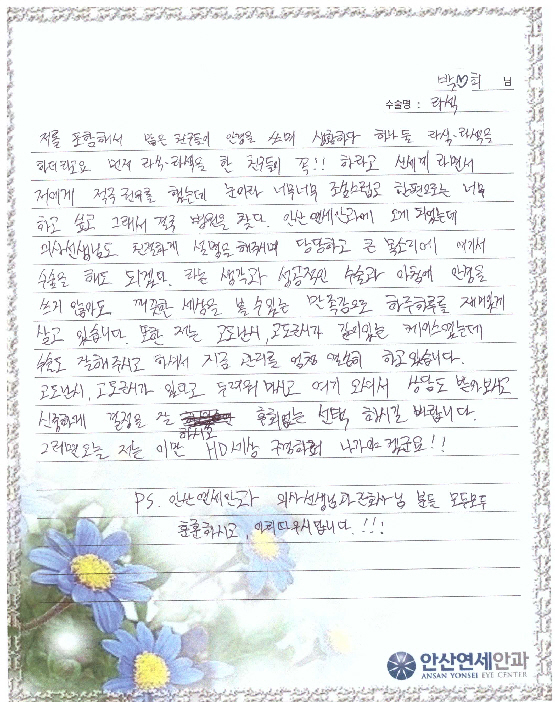 박♡희 님
수술명 : 라섹
저를 포함해서 많은 친구들이 안경을 쓰며 생활하다 하나 둘 라식·라섹을
하더라고요 먼저 라식·라섹을 한 친구들이 꼭!! 하라고 신세계 라면서
저에게 적극 권유를 했는데 눈이라 너무너무 조심스럽고 한편으로는 너무
하고 싶고 그래서 결국 병원을 찾다. 안산연세안과에 오게 되었는데
의사선생님도 친절하게 설명을 해주시며 당당하고 큰 목소리에 여기서
수술을 해도 되겠다. 라는 생각과 성공적인 수술과 아침에 안경을
쓰지 않아도 깨끗한 세상을 볼 수 있는 만족감으로 하루하루를 재밌게
살고 있습니다. 또한 저는 고도난시, 고도근시가 같이있는 케이스였는데
수술도 잘해주시고 하셔서 지금 관리를 엄청 열심히 하고 있습니다.
고도난시, 고도근시가 있다고 두려워 마시고 여기 오셔서 상담도 받아보시고
신중하게 결정을 잘 하시고 후회없는 선택 하시길 바랍니다.
그러면 오늘 저는 이만 HD세상 구경하러 나가야 겠군요!!
PS. 안산연세안과 의사선생님과 간호사님 분들 모두모두
훈훈하시고, 아리따우시답니다.!!!
안산연세안과
ANSAN YONSEI EYE CENTER